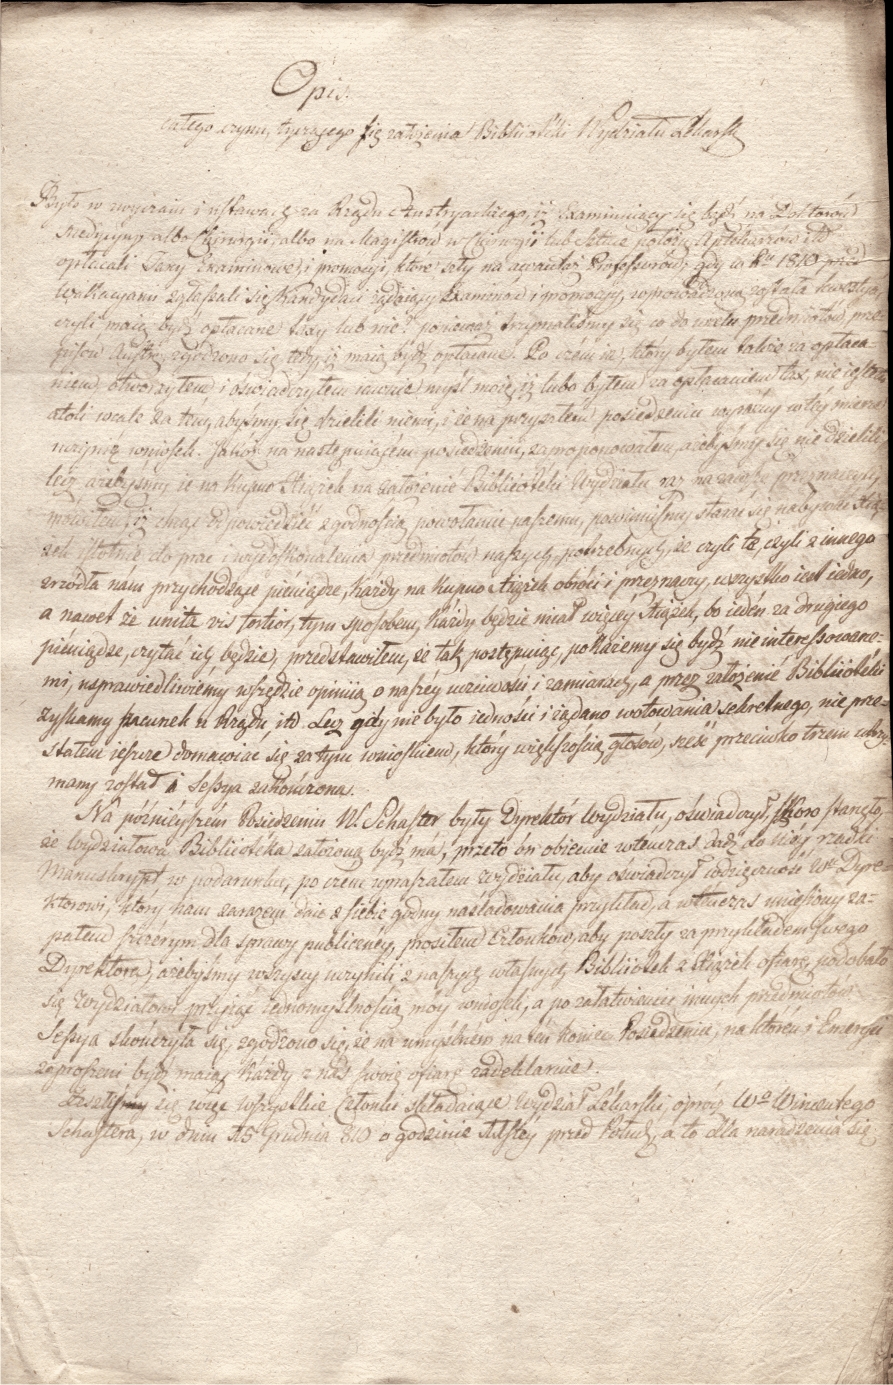 Opis.
całego czynu, tyczącego się założenia Bibliioteki Wydziału Lekarsk
Było w zwyczaiu i ustawach za Rządu Austryackiego, iż Examinuiący się bydź na Doktorów
Medycyny albo Chirurgii, albo na Magistrów w Chirurgii lub Sztuce położn: Aptekarzów itd
opłacali Taxy Examinowe, i promocyi, które szły na Professorów, gdy w Ru 1810 przed
Wakacyami zgłaszali się Kandydaci żądaiący Examinów i promocyi, wprowadzona została kwestya,
czyli maią bydź opłacane taxy lub nie? ponieważ trzymaliśmy się co do wielu przedmiotów, prze-
pisów Austr: zgodzono się tedy iż maią bydź opłacane. Po czém ia, który byłem także za opłaca-
niem, otworzyłem, i oświadczyłem myśl moię, iż lubo byłem za opłacaniem tax, nie iestem
atoli wcale za tem, abyśmy się dzielili niemi, i że na przyszłém posiedzeniu wyraźny w tey mierze
uczynię wniosek. Jakoż na następuiącém posiedzeniu, zaproponowałem, ażebyśmy się nie dzielili,
lecz ażebyśmy ie na kupno Książek na założenie Bibliioteki Wydziału raz na zawsze przeznaczyli,
mówiłem, iż chcąc odpowiedzieć z godnością powołaniu naszemu, powinniśmy starać się nabywać Ksią-
żek istotnie do prac i wydoskonalenia przedmiotów naszych potrzebnych, że czyli te, czyli z innego
zrzódła nam przychodzące pieniądze, każdy na kupno Książek obróci i przeznaczy, wszystko iest iedno,
a nawet że unita vis fortior, tym sposobem, każdy będzie miał więcéy Książek, bo ieden za drugiego
pieniądze, czytać ich będzie, przedstawiłem, że tak postępuiąc, pokażemy się bydź nie interessowane-
mi, usprawiedliwiémy wszędzie opiniią o naszéy uczciwości i zamiarach, a przez założenie Bibliioteki
zyskamy szacunek u Rządu, itd. Lecz gdy nie było iedności i żądano wotowania sekretnego, nie prze-
stałem ieszcze domawiać się za tym wnioskiem, który większością głosów, sześć przeciwko trzem utrzy-
many został i Sessya zakończona.
Na późnieyszém Posiedzeniu W. Schuster były Dyrektór Wydziału, oświadczył, skoro stanęło,
że Wydziałowa Bibliioteka założoną bydź má, przeto ón obiecuie wtenczas dadź do niéy rzadki
Manuskrypt, w podarunku, po czem upraszałem Wydziału, aby oświadczył wdzięczność Wu Dyre-
ktorowi, który nam zarazem daie z siebie godny naśladowania przykład, a wtenczas uniesiony za-
pałem szczérym dla sprawy publicznéy, prosiłem Członków, aby poszły za przykładem swego
Dyrektora, ażebyśmy wszyscy uczynili z naszych własnych Bibliiotek z Książek ofiarę, podobało
się Wydziałowi przyiąć iednomyślnością móy wniosek, a po załatwieniu innych przedmiotów
Sessya skończyła się, zgodzono się, że na umyślném na tén koniec Posiedzeniu, na którém i Emeryci
zaproszeni bydź maią, każdy z nas swoię ofiarę zadeklaruie.
Zeszli się więc wszyskie Członki składaiące Wydział Lékarski, oprócz Wo Wincentego
Schustera, w dniu 15 Grudnia 810 o godzinie 11stéy przed Połud:, a to dla naradzenia się